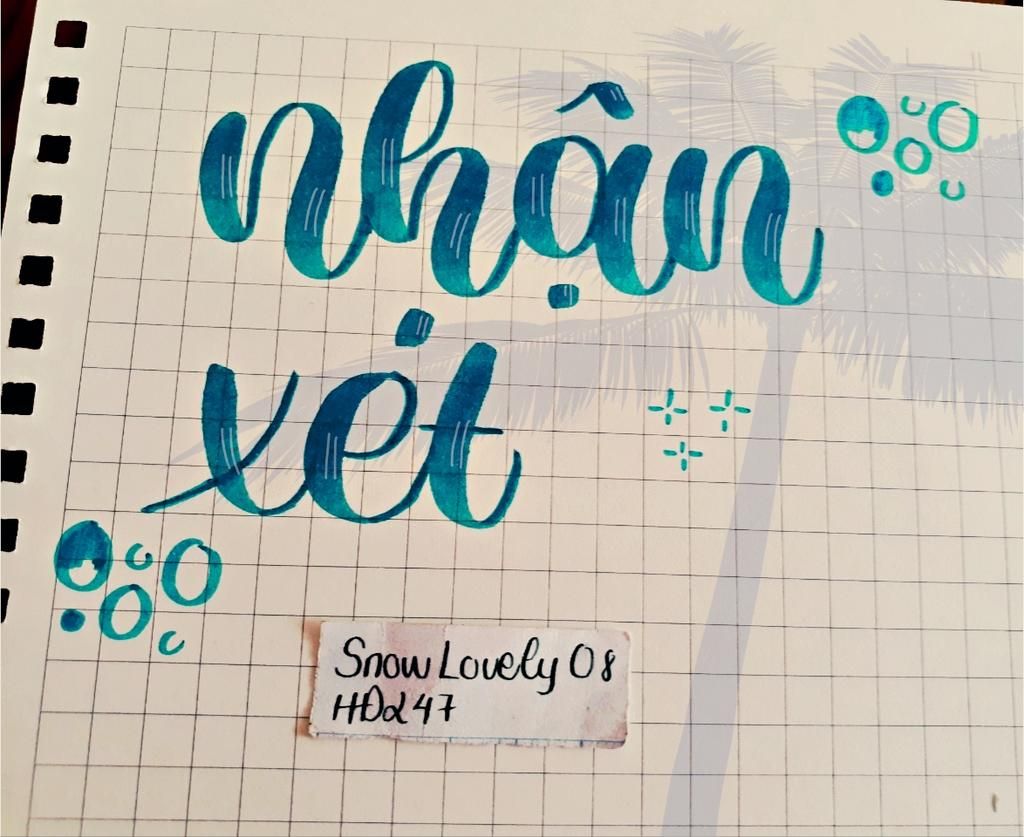 nhận
xẹt
Snow Lovely 08
HDα47